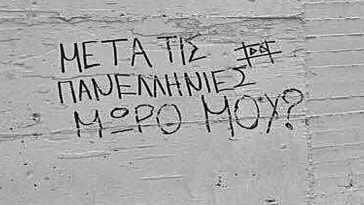 ΜΕΤΑ ΤΙΣ
ΠΑΝΕΛΛΗΝΙΕΣ
ΜΩΡΟ ΜΟΥ?